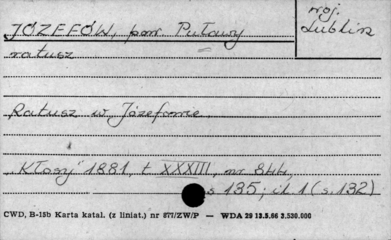 JÓZEFÓW, pow. Puławy
woj.
Lublin
ratusz
Ratusz w Józefowie.
"Kłosy" 1881, t. XXXIII, nr 844,
s 135; il. 1 (s. 132)
CWD, B-15b Karta katal. (z liniat.) nr 877/ZW/P — WDA 29 12.5.66 3.530.000